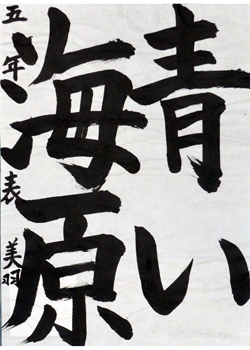 青い
海原
五年 表 美羽